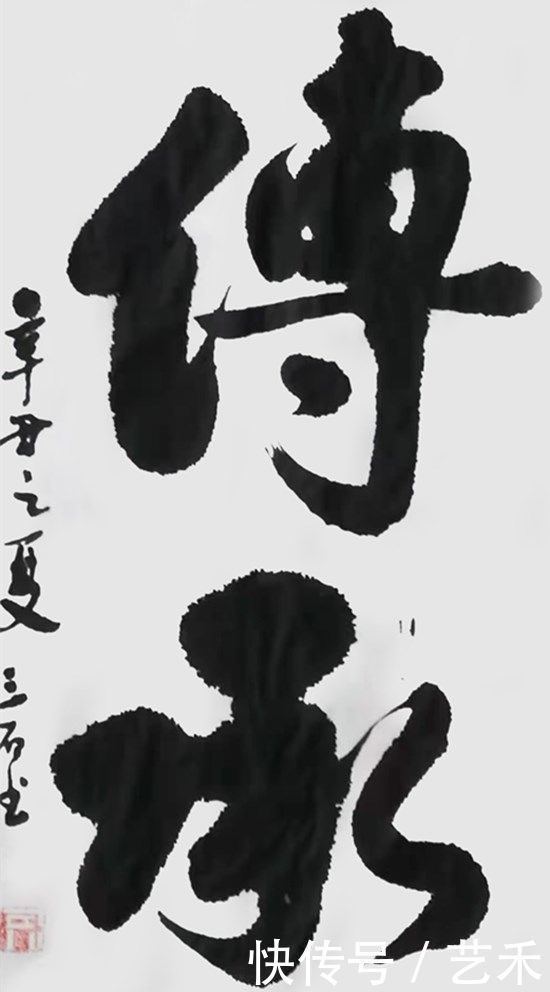 傳承
辛丑之夏 三石书
快传号 / 艺禾